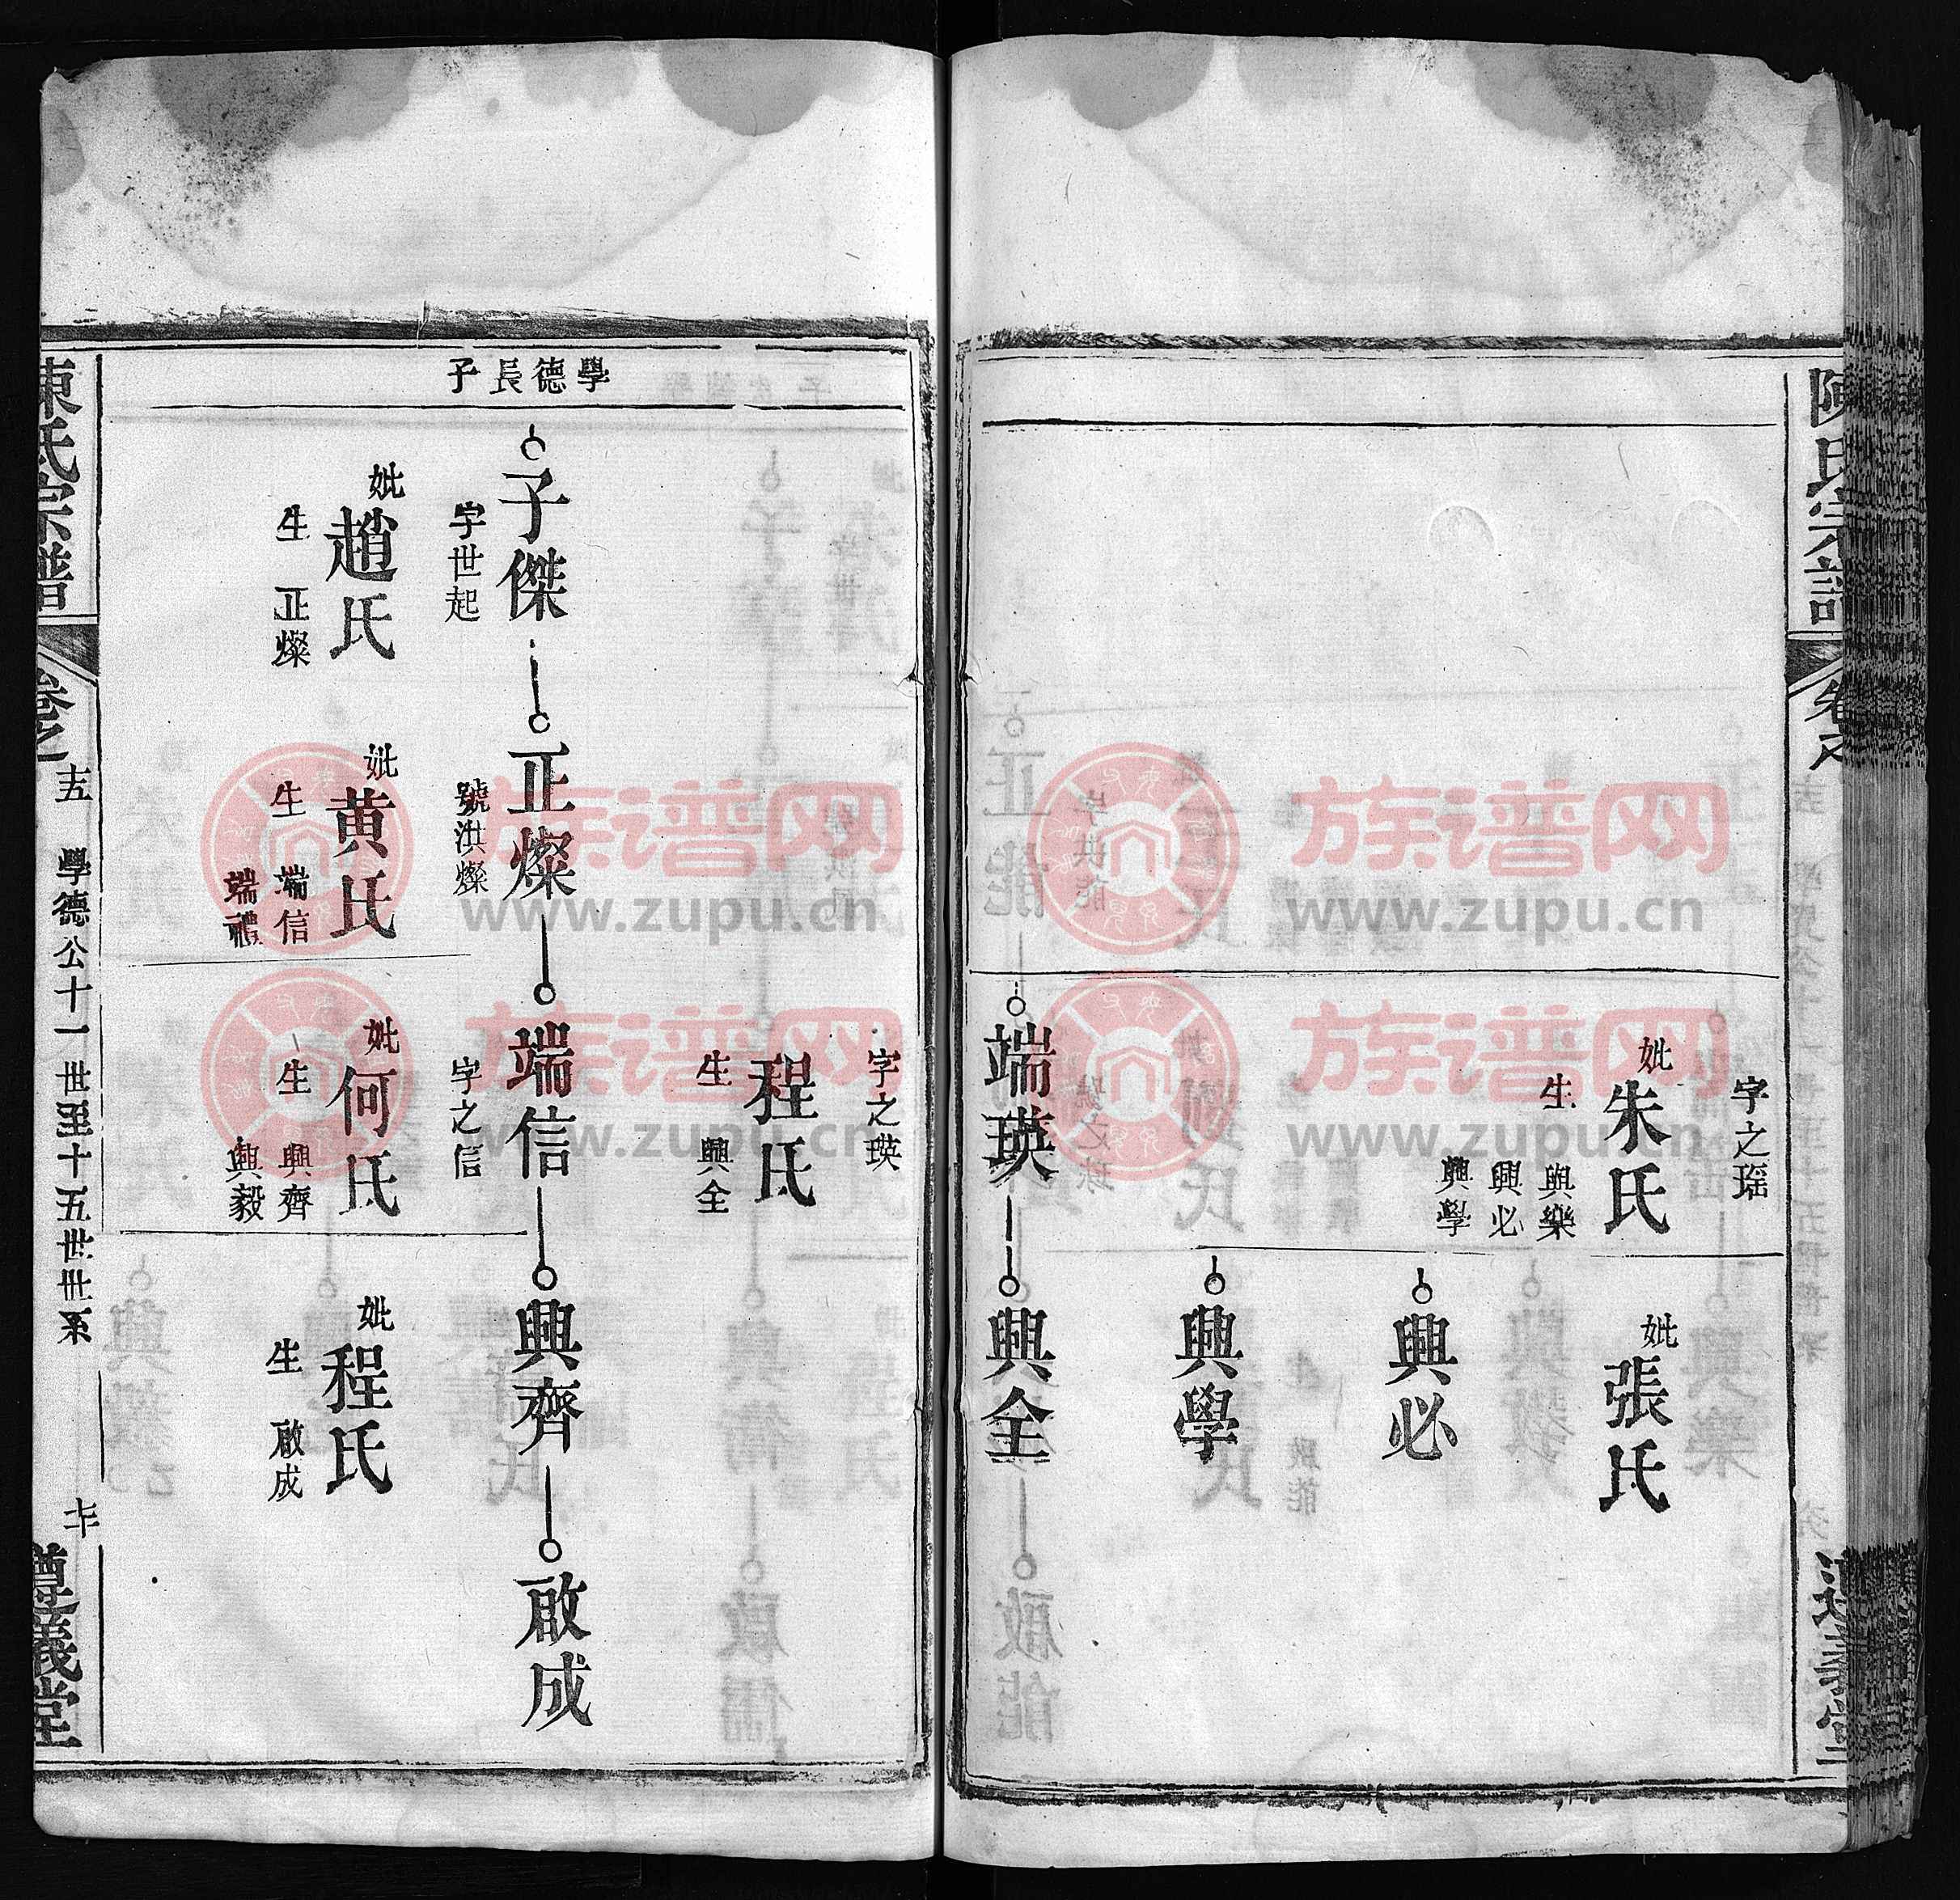 陳氏宗譜
卷之
字之瑶
妣朱氏
生 興樂
興必
興學
妣張氏
興必
興學
端瑛
興全
字之瑛
程氏
生 興全
學德長子
子傑
正燦
端信
興齊
啟成
字世起
號洪燦
字之信
妣趙氏
生 正燦
妣黄氏
生 端信
端禮
妣何氏
生 興齊
興毅
妣程氏
生 啟成
陳氏宗譜
卷之
學德公十一世至十五世世系
遵義堂
族谱网
www.zupu.cn
族谱网
www.zupu.cn
族谱网
www.zupu.cn
族谱网
www.zupu.cn